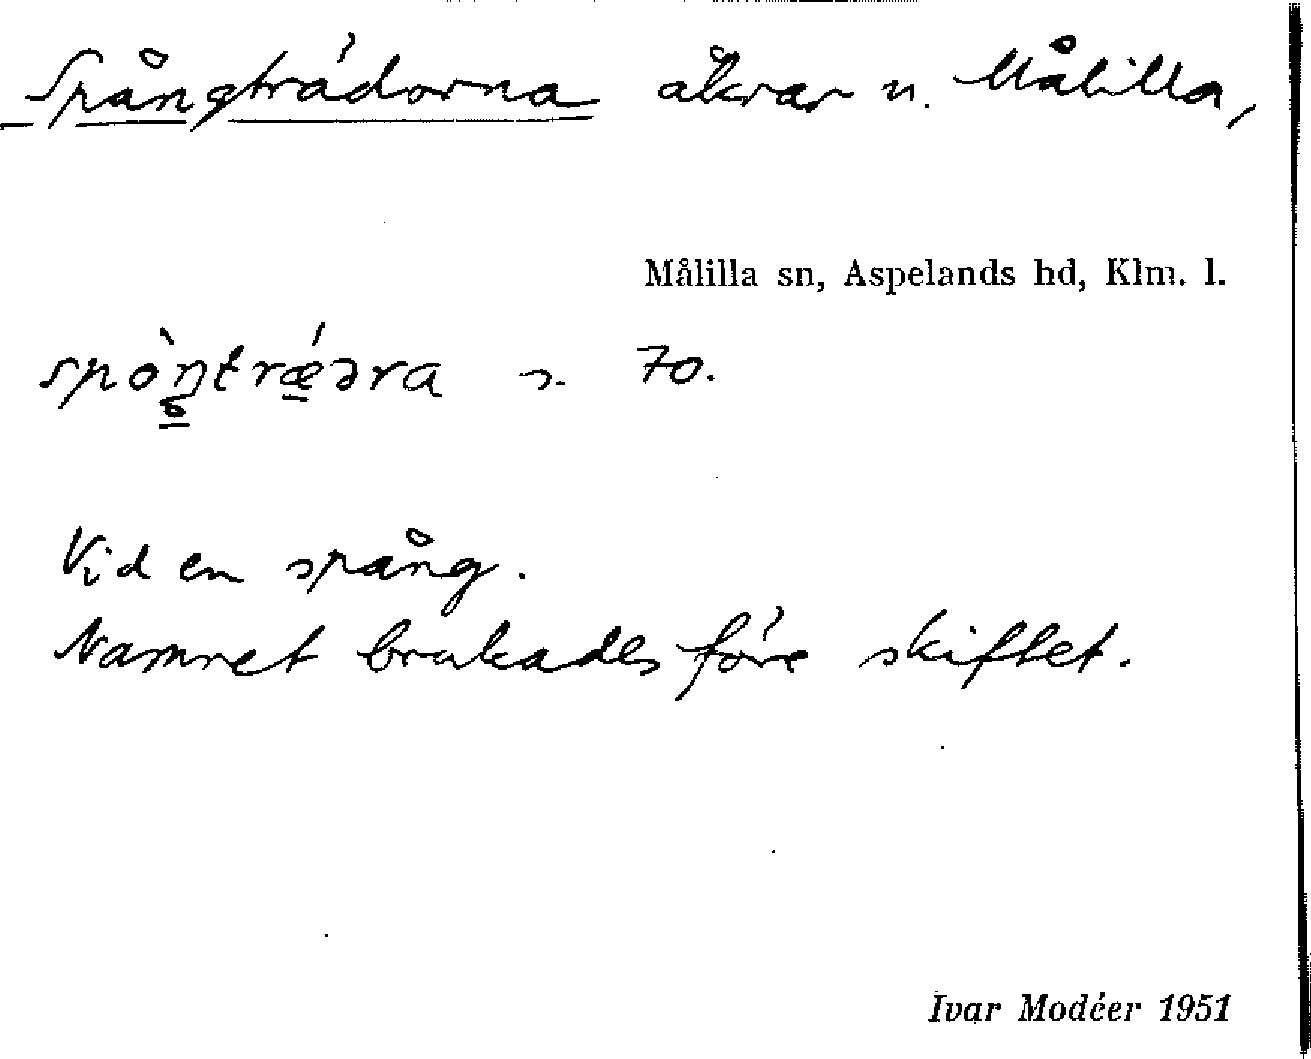 Spångträdorna åkrar n. Målilla,
Målilla sn, Aspelands hd, Klm. l.
spòŋtrǽəra s. 70.
Vid en spång.
Namnet brukades före skiftet.
Ivar Modéer 1951